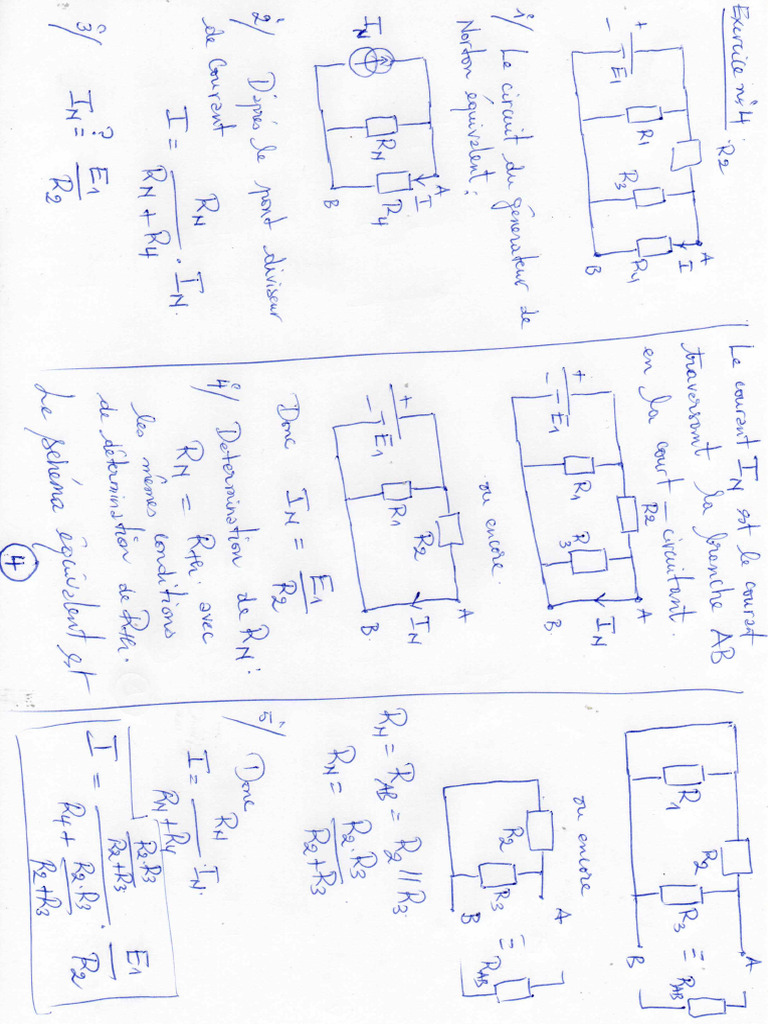 Exercice n°4
R2
+
-
E1
R1
R3
R4
I
A
B
1°/ Le circuit du générateur de
Norton équivalent:
IN
RN
R4
I
A
B
2°/ D'après le pont diviseur
de courant
I = RN / (RN + R4) . IN.
3°/ IN ? = E1 / R2
Le courant IN est le courant
traversant la branche AB
en la court-circuitant.
+
-
E1
R1
R2
R3
A
IN
B
ou encore.
+
-
E1
R1
R2
A
IN
B.
Donc IN = E1 / R2
4°/ Determination de RN:
RN = RTH. avec
les mêmes conditions
de détermination de RTH.
Le schéma équivalent est
4
R1
R2
R3
A
B
≡
RAB
ou encore
R2
R3
A
B
≡
RAB
RN = RAB = R2 // R3.
RN = R2.R3 / (R2+R3)
5°/ Donc
I = RN / (RN+R4) . IN.
I = (R2.R3 / (R2+R3)) / (R4 + R2.R3 / (R2+R3)) . E1 / R2